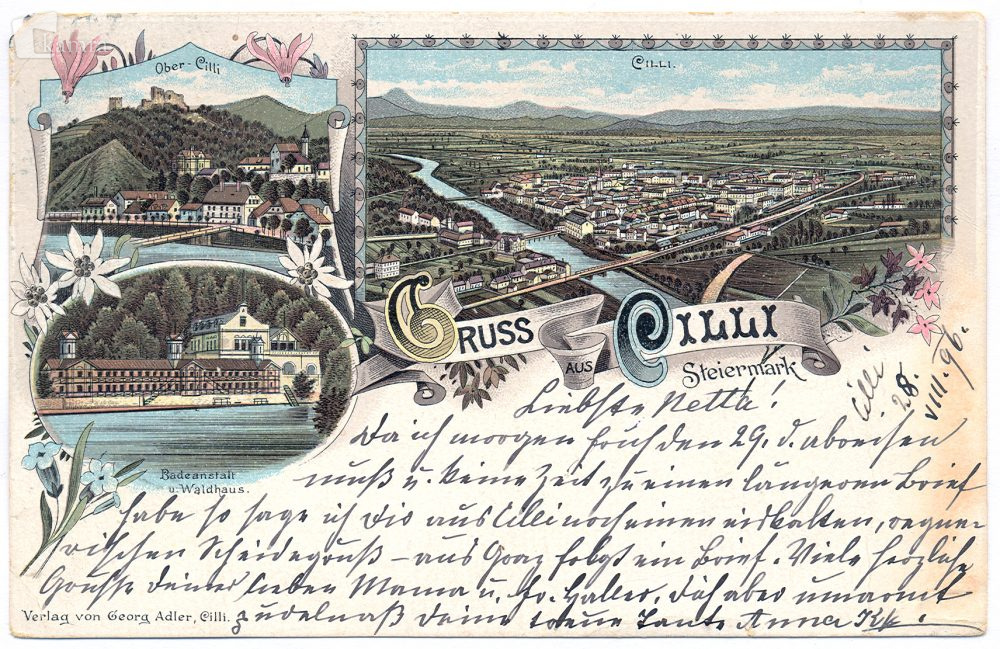 Ober-Cilli
CILLI.
GRUSS
AUS
CILLI
Steiermark
Badeanstalt
u. Waldhaus.
Cilli
28.
VIII. 96.
Liebste Netta!
Da ich morgen früh den 29. d. abreisen
muß u. keine Zeit zu einen längeren Brief
habe so sage ich Dir aus Cilli noch einen eiskalten, regne-
rischen Scheidegruß – aus Graz folgt ein Brief. Viele herzliche
Grüße deiner lieben Mama u. Fr. Haller. Dich aber umarmt
Verlag von Georg Adler, Cilli.
deine treue Tante Anna